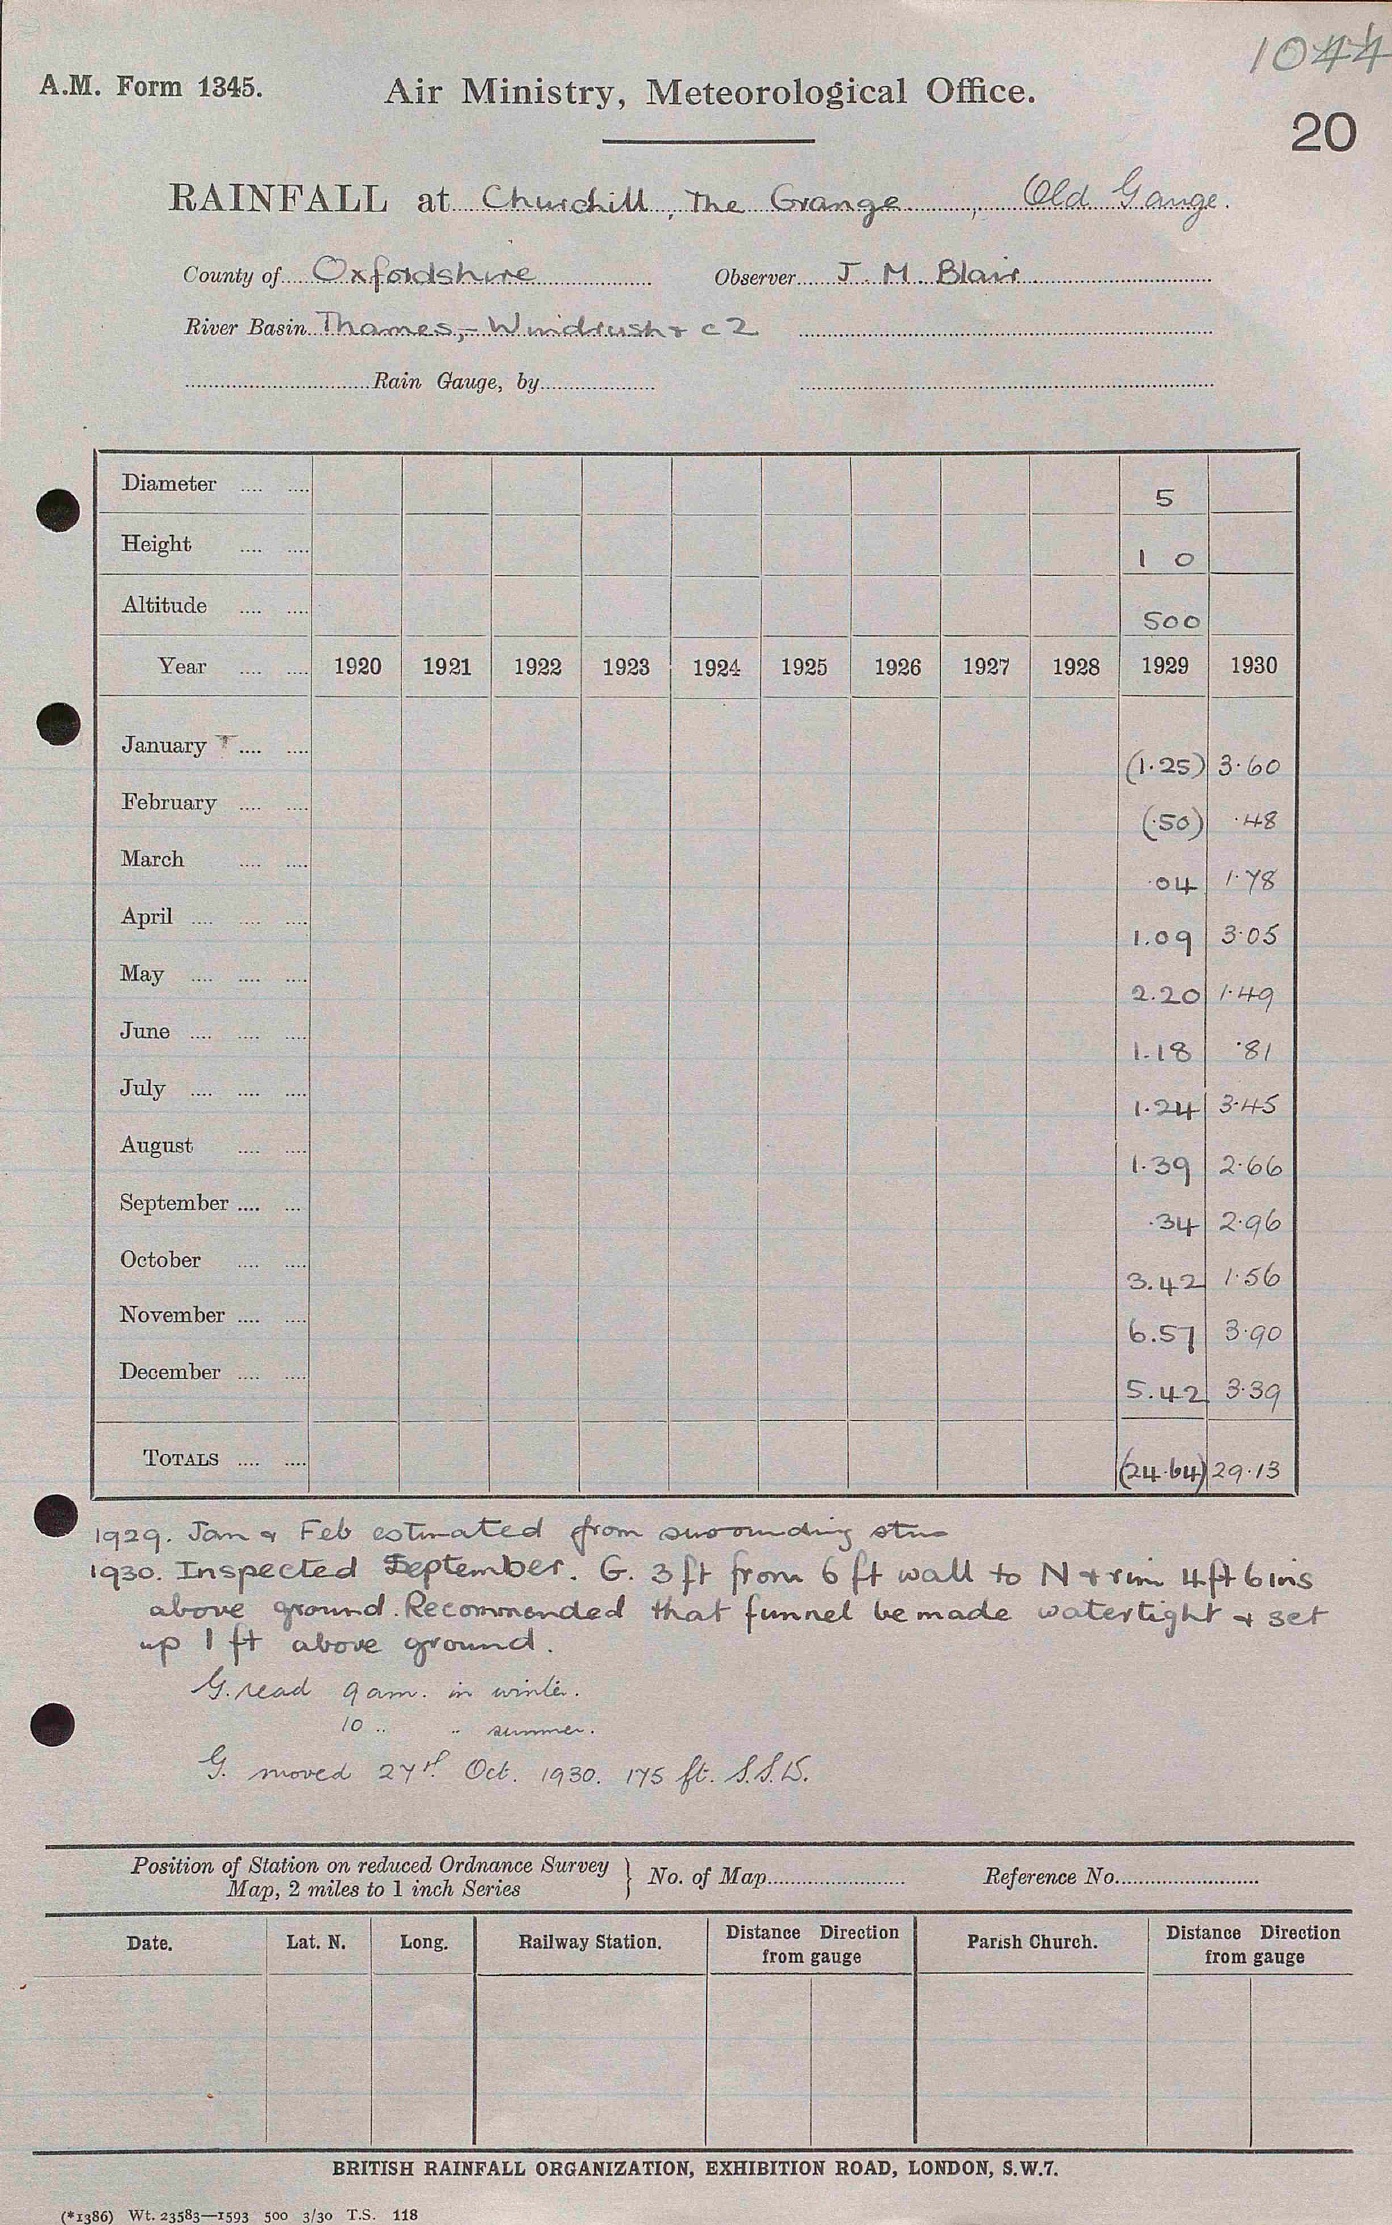 1044
A.M. Form 1345.
Air Ministry, Meteorological Office.
20
RAINFALL at Churchill, The Grange, Old Gauge.
County of Oxfordshire Observer J. M. Blair
River Basin Thames,- Windrush + c 2
Rain Gauge, by
Diameter 5
Height 1 0
Altitude 500
Year 1920 1921 1922 1923 1924 1925 1926 1927 1928 1929 1930
January (1.25) 3.60
February (.50) .48
March .04 1.78
April 1.09 3.05
May 2.20 1.49
June 1.18 .81
July 1.24 3.45
August 1.39 2.66
September .34 2.96
October 3.42 1.56
November 6.57 3.90
December 5.42 3.39
TOTALS (24.64) 29.13
1929. Jan & Feb estimated from surrounding stns
1930. Inspected September. G. 3 ft from 6 ft wall to N + rim 4ft 6ins
above ground. Recommended that funnel be made watertight + set
up 1 ft above ground.
G. read 9 am. in winter.
10 .. .. summer.
G. moved 27th Oct. 1930. 175 ft. S.S.W.
Position of Station on reduced Ordnance Survey
Map, 2 miles to 1 inch Series } No. of Map Reference No.
Date. Lat. N. Long. Railway Station. Distance Direction from gauge Parish Church. Distance Direction from gauge
BRITISH RAINFALL ORGANIZATION, EXHIBITION ROAD, LONDON, S.W.7.
(*1386) Wt. 23583—1593 500 3/30 T.S. 118